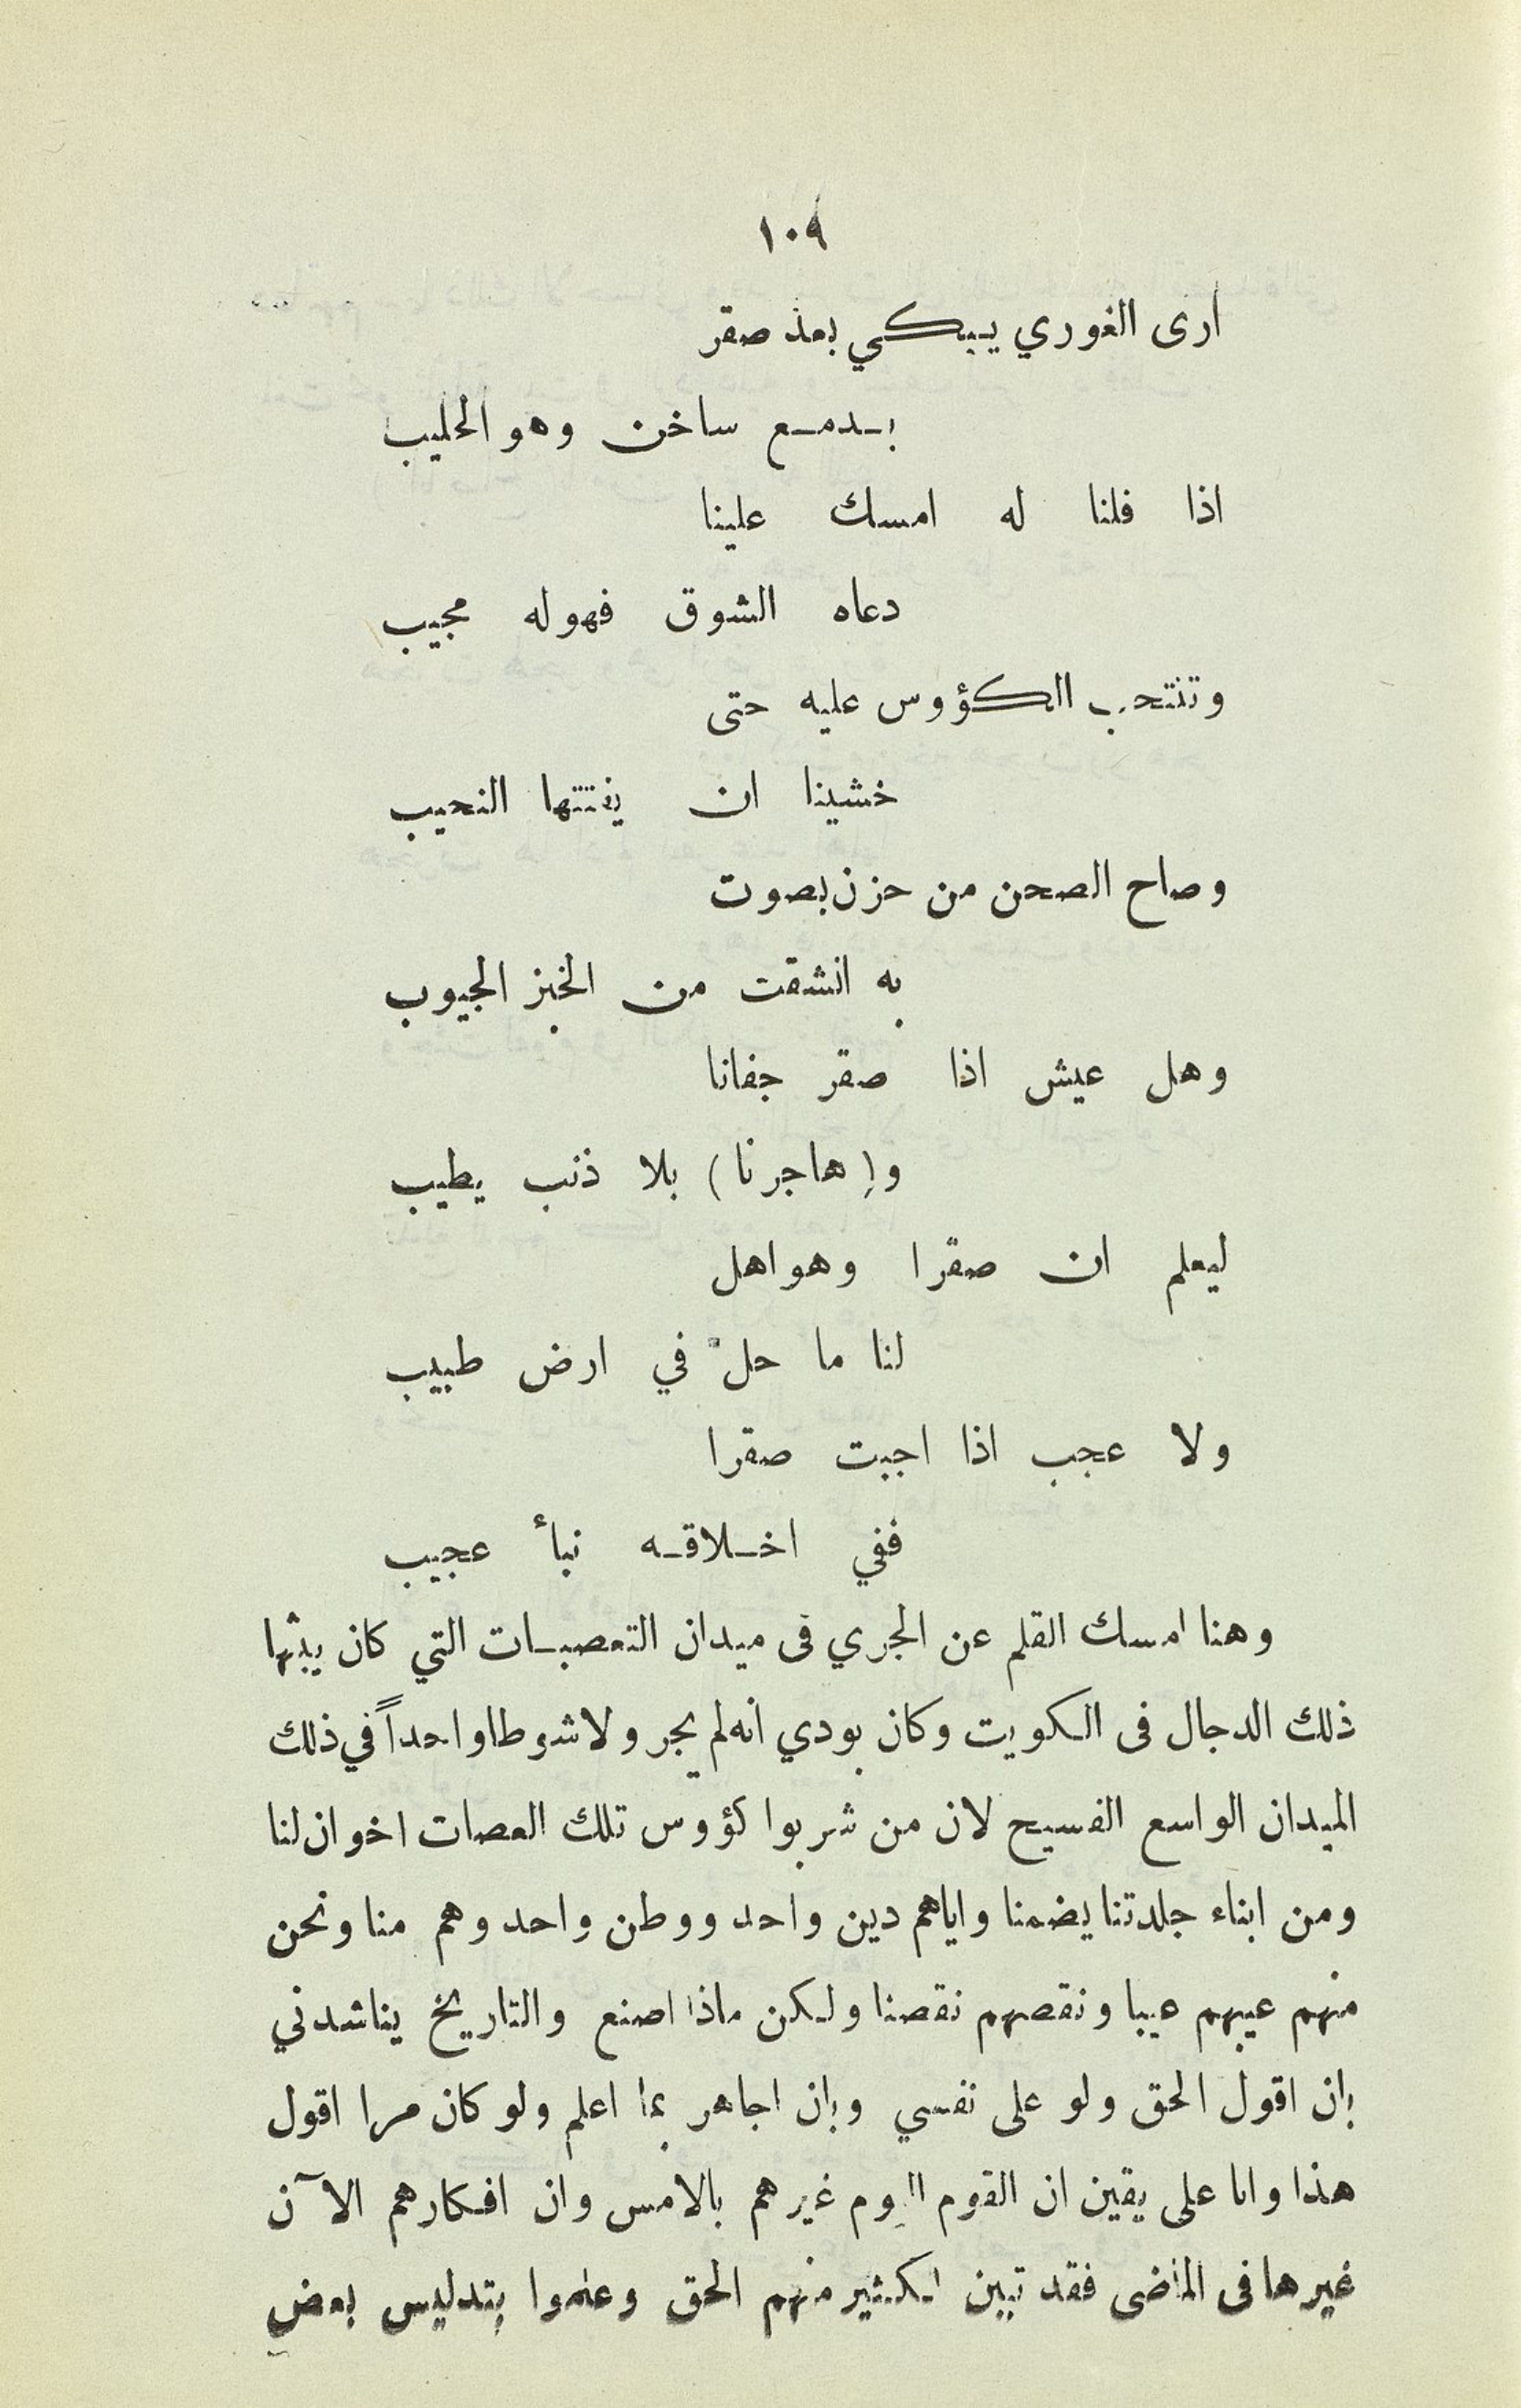 ١٠٩
ارى الغوري يبكي بعد صقر
بدمع ساخن وهو الحليب
اذا قلنا له امسك علينا
دعاه الشوق فهو له مجيب
وتنتحب الكؤوس عليه حتى
خشينا ان يفتتها النحيب
وصاح الصحن من حزن بصوت
به انشقت من الخبز الجيوب
وهل عيش اذا صقر جفانا
و(هاجرنا) بلا ذنب يطيب
ليعلم ان صقرا وهو اهل
لنا ما حلّ في ارض طبيب
ولا عجب اذا اجبت صقرا
ففي اخلاقه نبأ عجيب
وهنا امسك القلم عن الجري فى ميدان التعصبات التي كان يبثها
ذلك الدجال فى الكويت وكان بودي انه لم يجر ولا شوطا واحداً في ذلك
الميدان الواسع الفسيح لان من شربوا كؤوس تلك العصات اخوان لنا
ومن ابناء جلدتنا يضمنا واياهم دين واحد ووطن واحد وهم منا ونحن
منهم عيبهم عيبا ونقصهم نقصنا ولكن ماذا اصنع والتاريخ يناشدني
بان اقول الحق ولو على نفسي وبان اجاهر بما اعلم ولو كان مرا اقول
هذا وانا على يقين ان القوم اليوم غيرهم بالامس وان افكارهم الآن
غيرها فى الماضى فقد تبين لكثير منهم الحق وعلموا بتدليس بعض